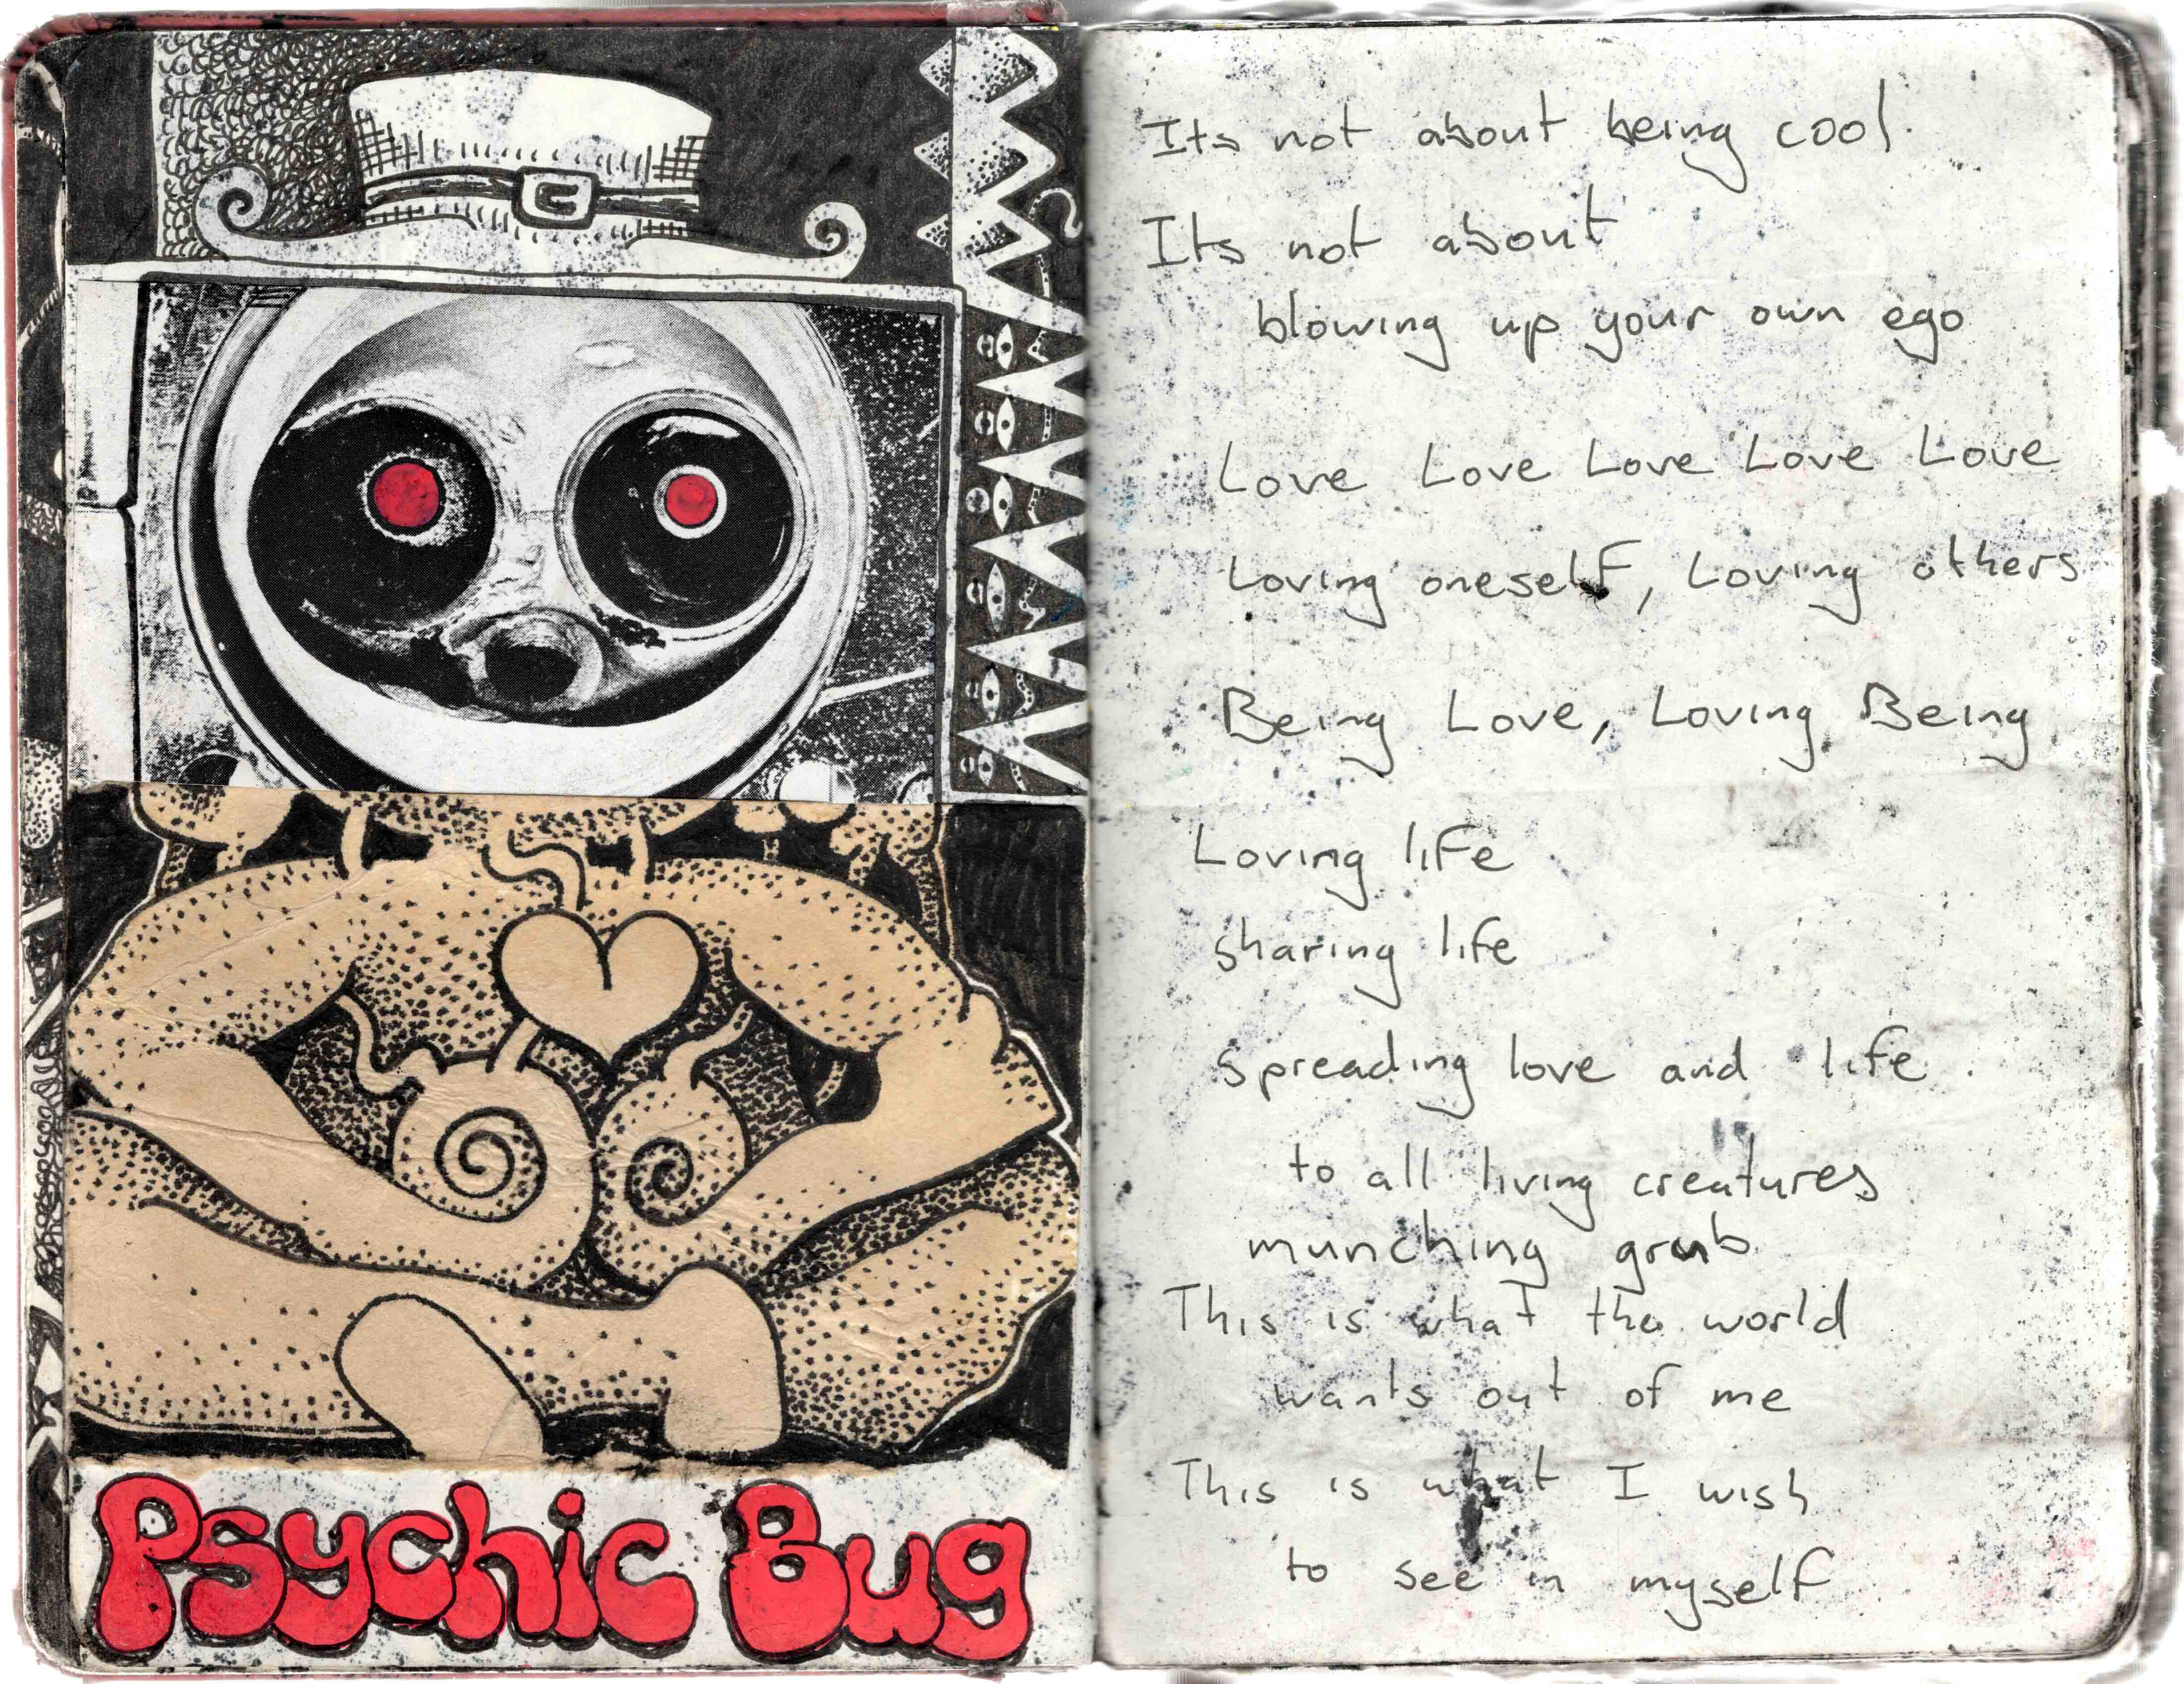 Psychic Bug
Its not about being cool.
Its not about
blowing up your own ego
Love Love Love Love Love
Loving oneself, Loving others
Being Love, Loving Being
Loving life
sharing life
spreading love and life.
to all living creatures
munching grub
This is what the world
wants out of me
This is what I wish
to see in myself